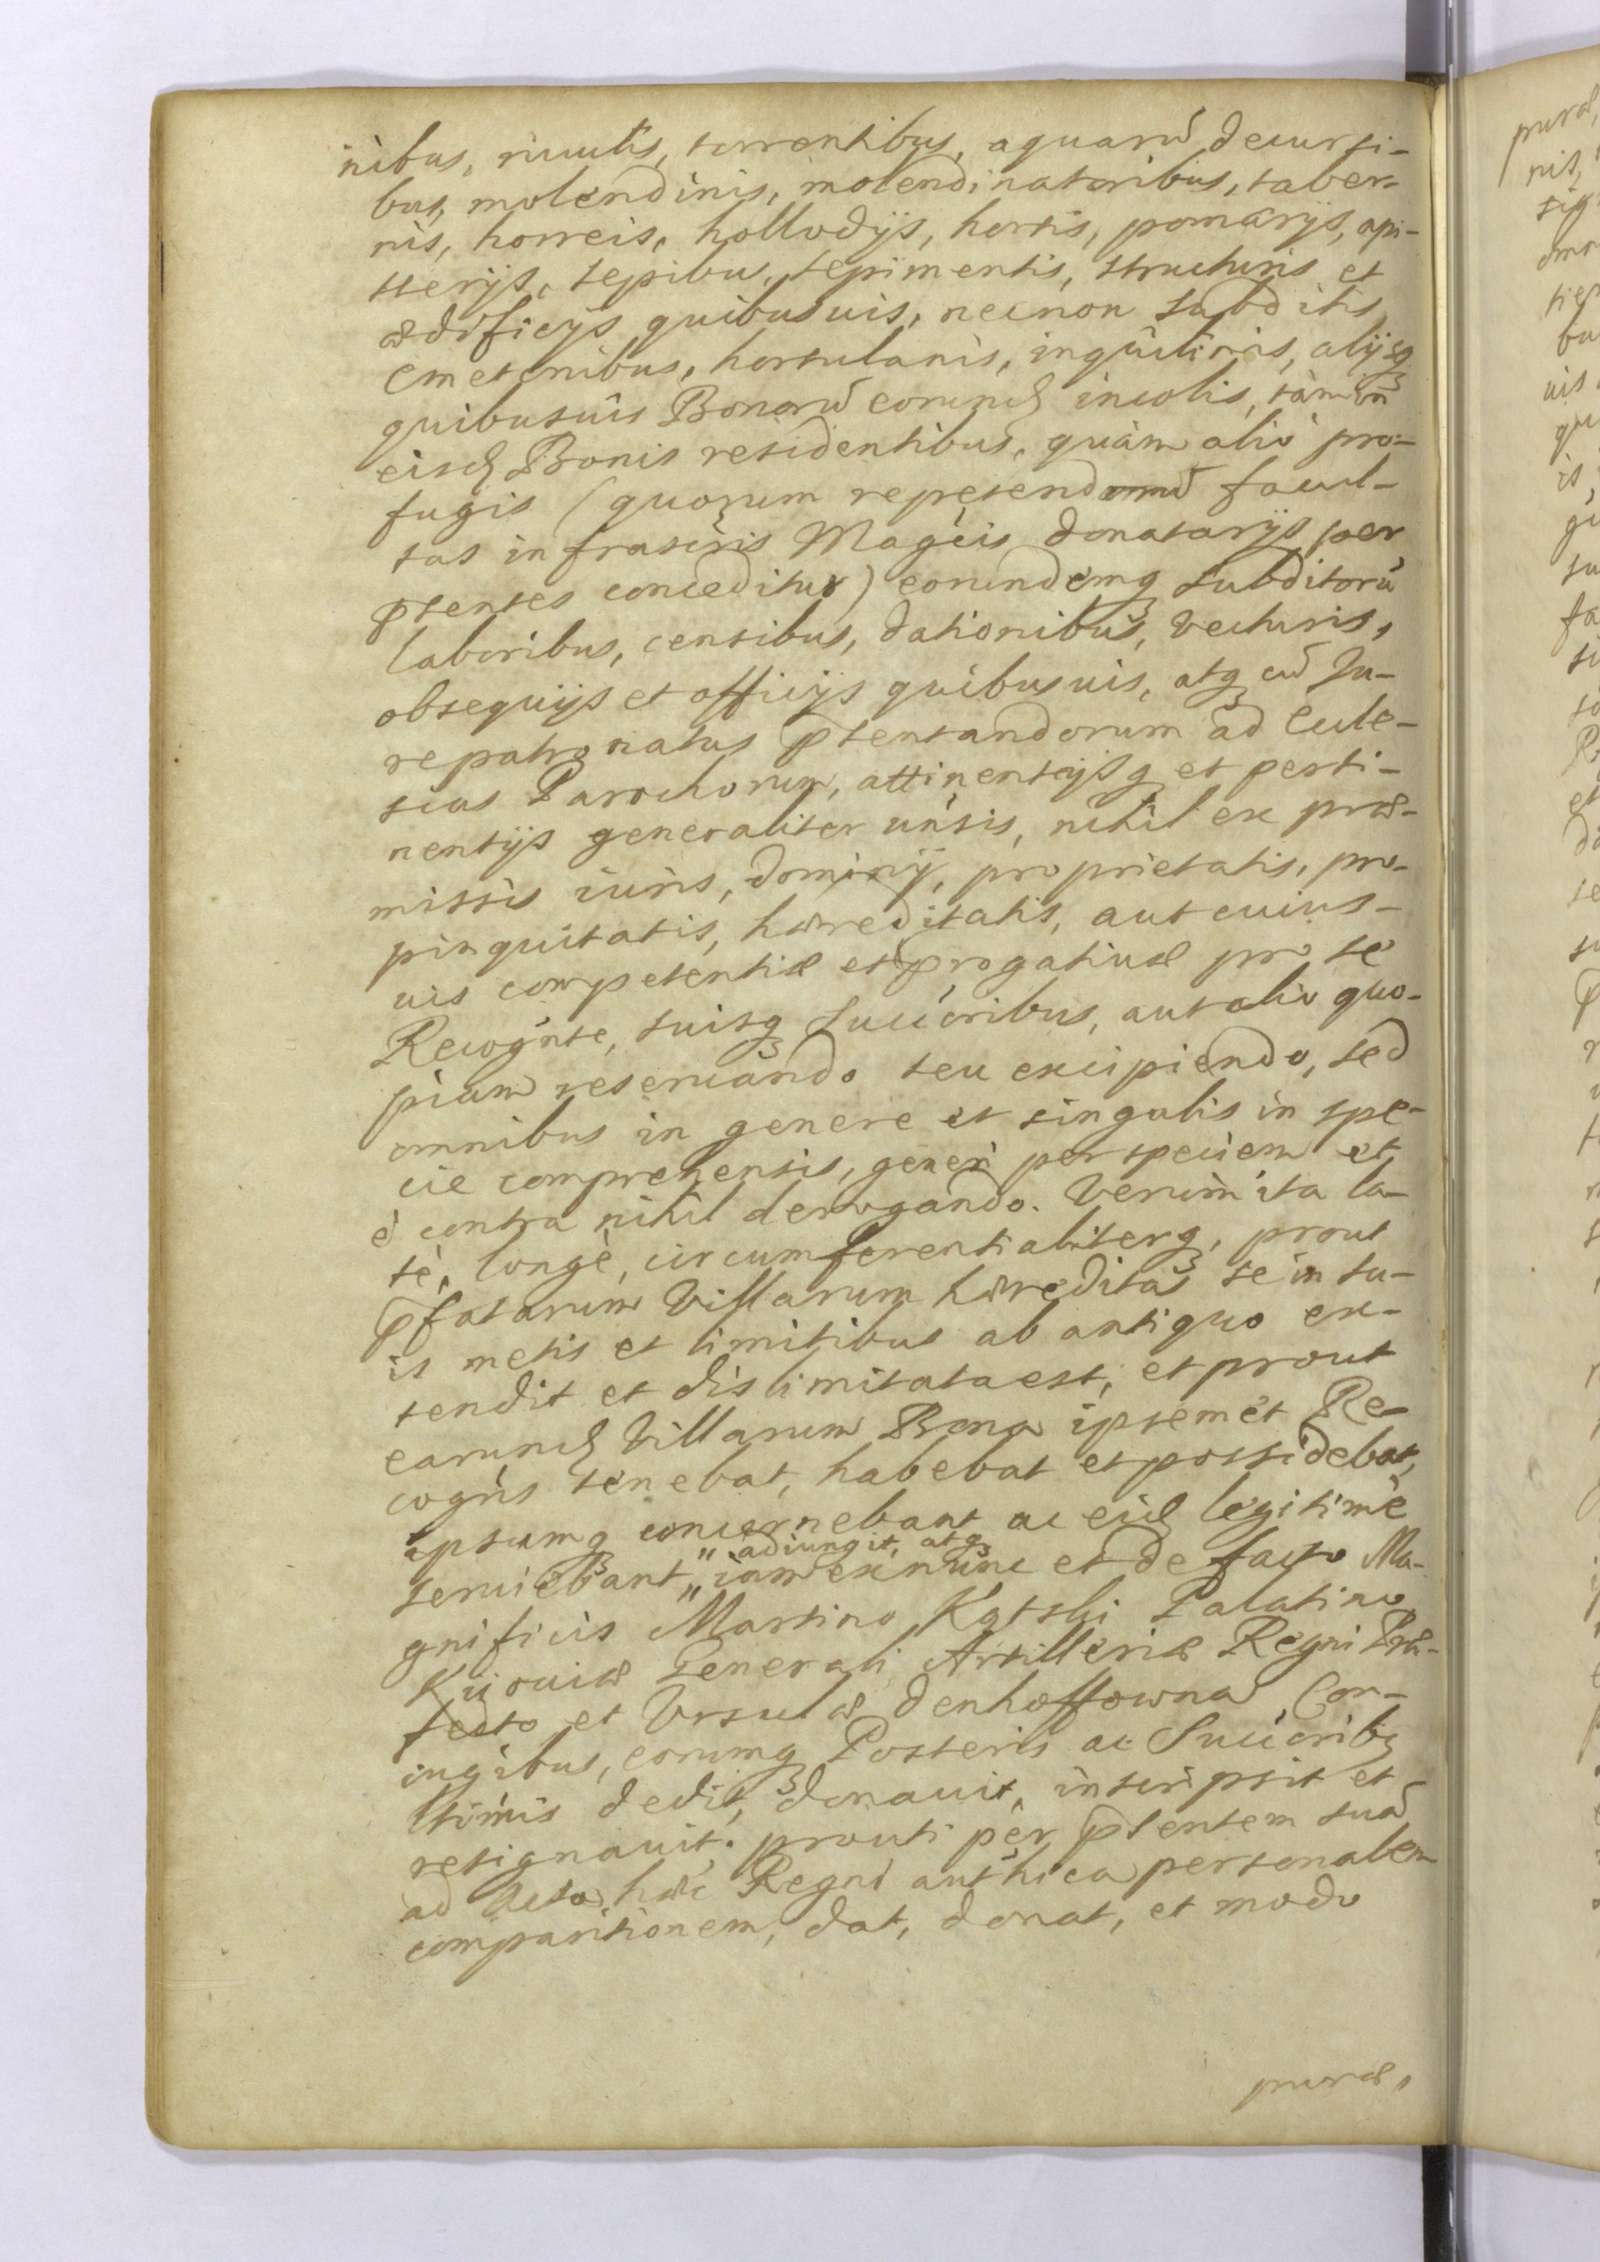 nibus, riuulis, torrentibus, aquarũ decursi-
bus, molendinis, molendinatoribus, taber-
nis, horreis, hollodijs, hortis, pomarijs, api-
sterijs, sepibus, sepimentis, structuris et
ædificijs quibusuis, necnon subditis
Cmetonibus, hortulanis, inquilinis, alijsq
quibusuis Bonorũ eorund incolis, tàm in
eisd Bonis residentibus, quàm aliò pro-
fugis (quorum repetendorũ facul-
tas infrascris Magcis donatarijs per
ptentes conceditur) eorundemq subditorũ
laboribus, censibus, dationibus, vecturis,
obsequijs et officijs quibusuis, atq cũ Ju-
repatronatus ptentandorum ad Eccle-
sias Parochorum, attinentijsq et perti-
nentijs generaliter unsis, nihil ex præ-
missis iuris, dominij, proprietatis, pro-
pinquitatis, hæreditatis, aut cuius-
uis competentiæ et progatiuæ pro se
Recognte, suisq Succoribus, aut alio quo-
piam reseruando seu excipiendo, sed
omnibus in genere et singulis in spe-
cie comprehensis, generi per speciem et
è contra nihil derogando. Verùm ita la-
tè, longè, circumferentialiterq, prout
pfatarum Villarum hæreditas se in su-
is metis et limitibus ab antiquo ex-
tendit et dislimitata est, et prout
earund Villarum Bona ipsemet Re-
cogns tenebat, habebat et possidebat,
ipsumq concernebant ac eid legitimè
seruiebant, "iam exnunc et de facto Ma-
" adiungit, atq
gnificis Martino Kątski Palatino
Kijouiæ Generali Artilleriæ Regni Præ-
fecto et Vrsulæ Denhoffowna Con-
iugibus, eorumq Posteris ac Succoribq
ltimis dedit, donauit, inscripsit et
resignauit. prouti per ptentem suã
ad Acta hæc Regni authica personalem
comparitionem, dat, donat, et modo
puræ,